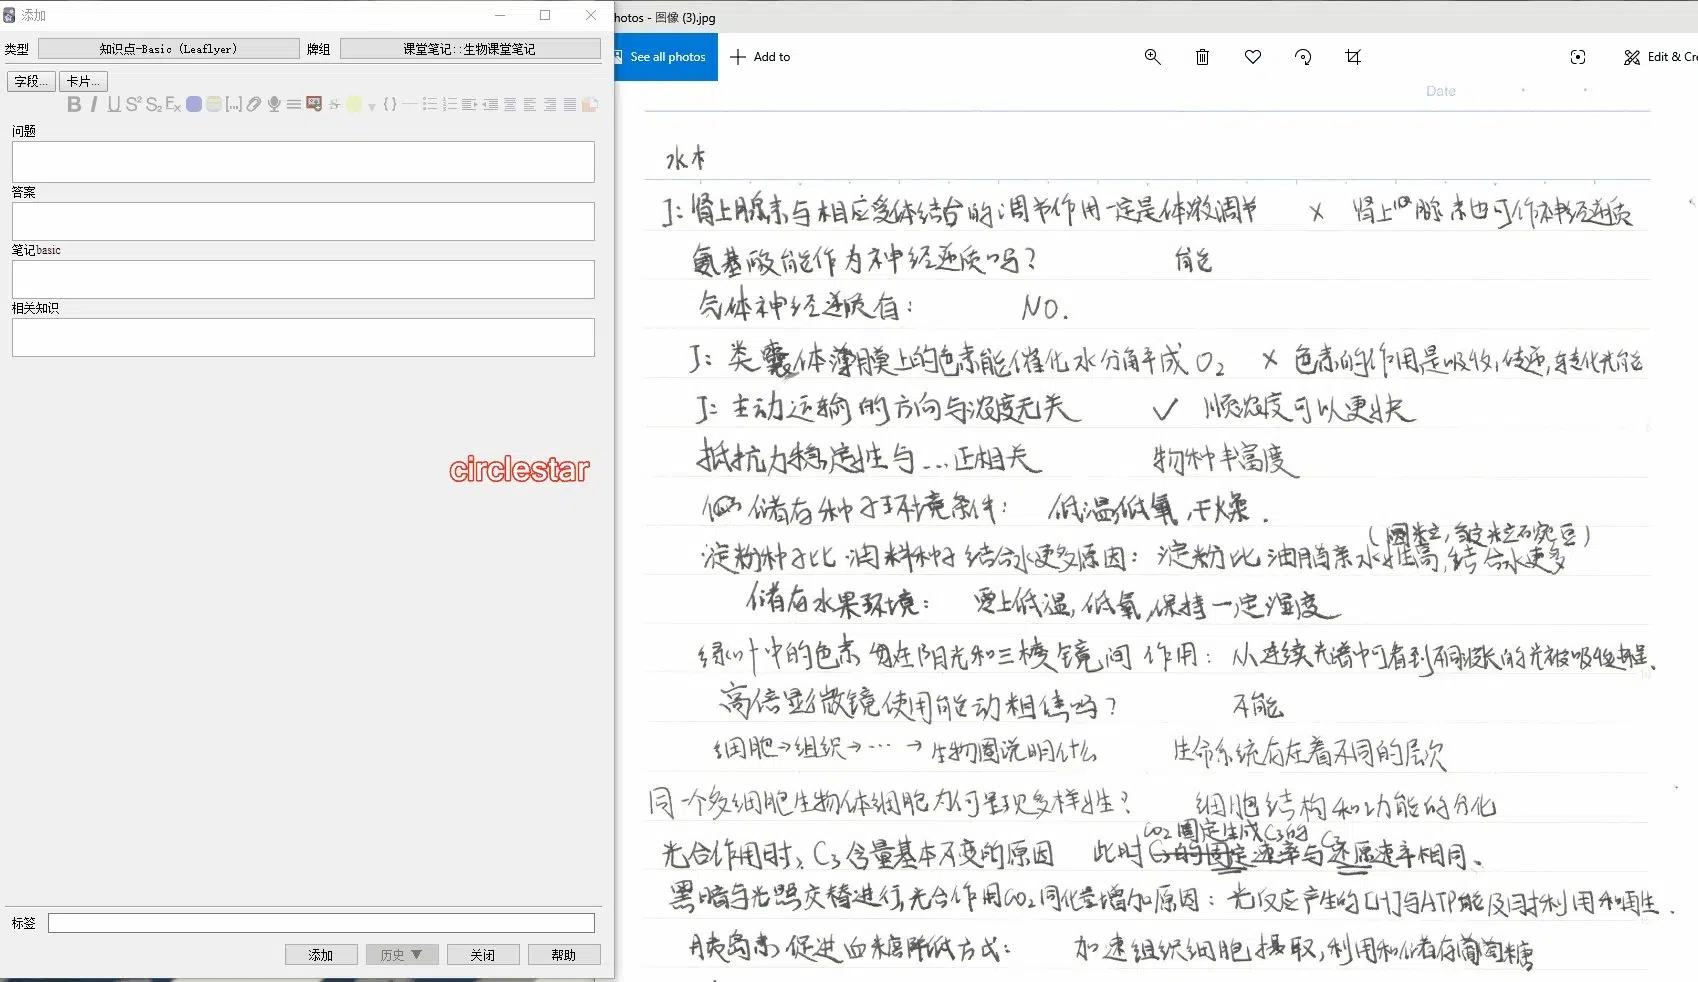 添加
类型 知识点-Basic (Leaflyer) 牌组 课堂笔记::生物课堂笔记
字段... 卡片...
问题
答案
笔记basic
相关知识
circlestar
标签
添加 历史 ▼ 关闭 帮助
hotos - 图像 (3).jpg
See all photos Add to Edit & Cre
Date
水木
J: 肾上腺素与相应受体结合的调节作用一定是体液调节 × 肾上腺素也可作神经递质
氨基酸能作为神经递质吗? 能
气体神经递质有: NO.
J: 类囊体薄膜上的色素能催化水分解成O₂ × 色素的作用是吸收,传递,转化光能
J: 主动运输的方向与浓度无关 ✓ 顺浓度可以更快
抵抗力稳定性与...正相关 物种丰富度
储存种子环境条件: 低温,低氧,干燥.
(圆粒,皱粒豌豆)
淀粉种子比油料种子结合水更多原因: 淀粉比油脂亲水性高,结合水更多
储存水果环境: 零上低温,低氧,保持一定湿度
绿叶中的色素 在阳光和三棱镜间作用: 从连续光谱中可看到不同波长的光被吸收
高倍显微镜使用能动粗焦吗? 不能
细胞→组织→...→生物圈说明什么 生命系统存在着不同的层次
同一个多细胞生物体细胞为何呈现多样性? 细胞结构和功能的分化
CO₂固定生成C₃的
光合作用时,C₃含量基本不变的原因 此时C₃的固定速率与C₃还原速率相同、
黑暗与光照交替进行,光合作用CO₂同化量增加原因: 光反应产生的[H]与ATP能及时利用和再生.
胰岛素促进血糖降低方式: 加速组织细胞摄取,利用和储存葡萄糖